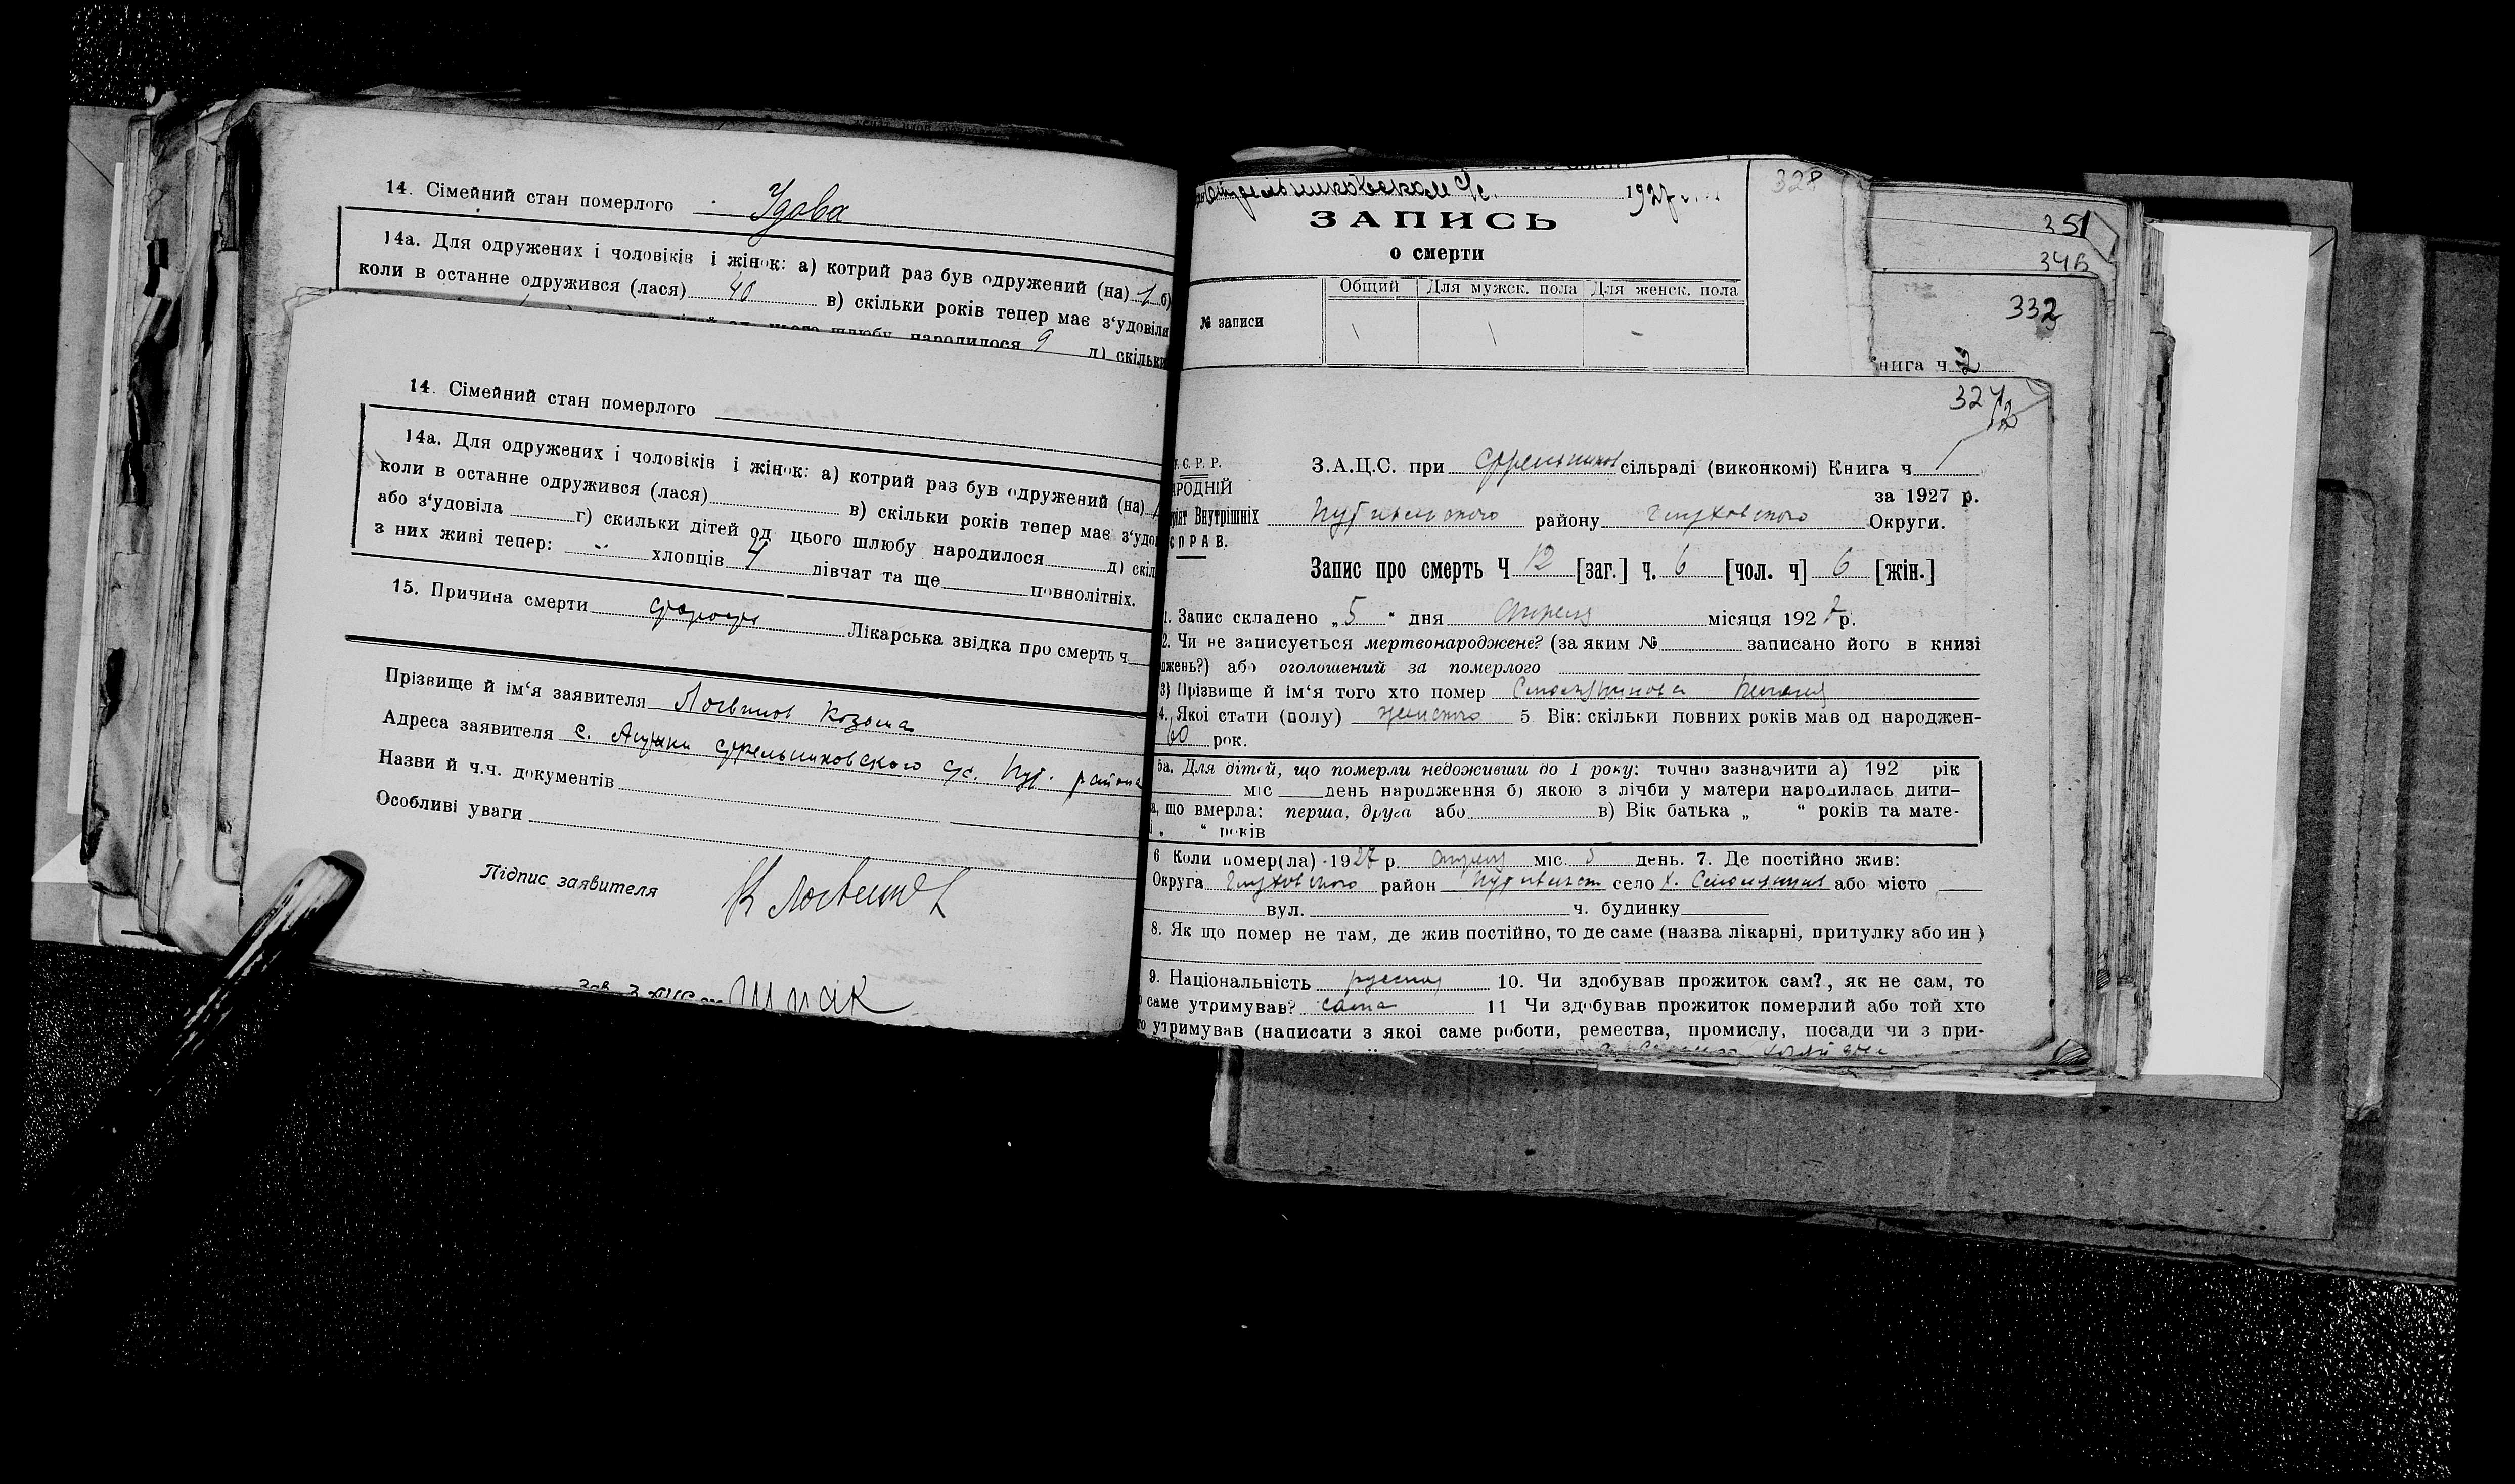 14. Сімейний стан померлого Удова
14а. Для одружених і чоловіків і жінок: а) котрий раз був одружений (на) 1 б)
коли в останне одружився (лася) 40 в) скільки років тепер має з‘удовіли
шлюбу народилося 9 д) скільки
14. Сімейний стан померлого
14а. Для одружених і чоловіків і жінок: а) котрий раз був одружений (на)
коли в останне одружився (лася) в) скільки років тепер має з‘удо
або з‘удовіла г) скильки дітей од цього шлюбу народилося д) скіл
з них живі тепер: „ хлопців дівчат та ще повнолітніх.
15. Причина смерти старость Лікарська звідка про смерть ч
Прізвище й ім‘я заявителя Логвинов Козьма
Адреса заявителя с. стрельниковского с/с. Пут. района
Назви й ч.ч. документів
Особливі уваги
Підпис заявителя К Логвинов
Шпак
Стрельниковском с/с. 1927 г.
328
ЗАПИСЬ
о смерти
Общий Для мужск. пола Для женск. пола
№ записи 1 1 –
351
346
332
нига ч 2
327
12
. С. Р. Р.
З.А.Ц.С. при Стрельников сільраді (виконкомі) Книга ч 1
АРОДНІЙ
за 1927 р.
ріят Внутрішніх Путивльского району Глуховского Округи.
СПРАВ.
Запис про смерть Ч 12 [заг.] ч. 6 [чол. ч] 6 [жін.]
1. Запис складено „ 5 “ дня Апреля місяця 1927 р.
2. Чи не записується мертвонароджене? (за яким № записано його в книзі
жень?) або оголошений за померлого
3) Прізвище й ім‘я того хто помер
4. Якої стати (полу) женского 5 Вік: скільки повних років мав од народжен-
60 рок.
5а. Для дітей, що померли недоживши до 1 року: точно зазначити а) 192 рік
міс день народження б) якою з лічби у матери народилась дити-
а, що вмерла: перша, друга або в) Вік батька „ “ років та мате-
і „ “ років
6 Коли помер(ла) 1927 р. апреля міс. 5 день. 7. Де постійно жив:
Округа Глуховского район Путивльск село х. або місто
вул. ч. будинку
8. Як що помер не там, де жив постійно, то де саме (назва лікарні, притулку або ин )
9. Національність русская 10. Чи здобував прожиток сам?, як не сам, то
саме утримував? сама 11 Чи здобував прожиток померлий або той хто
го утримував (написати з якої саме роботи, ремества, промислу, посади чи з при-